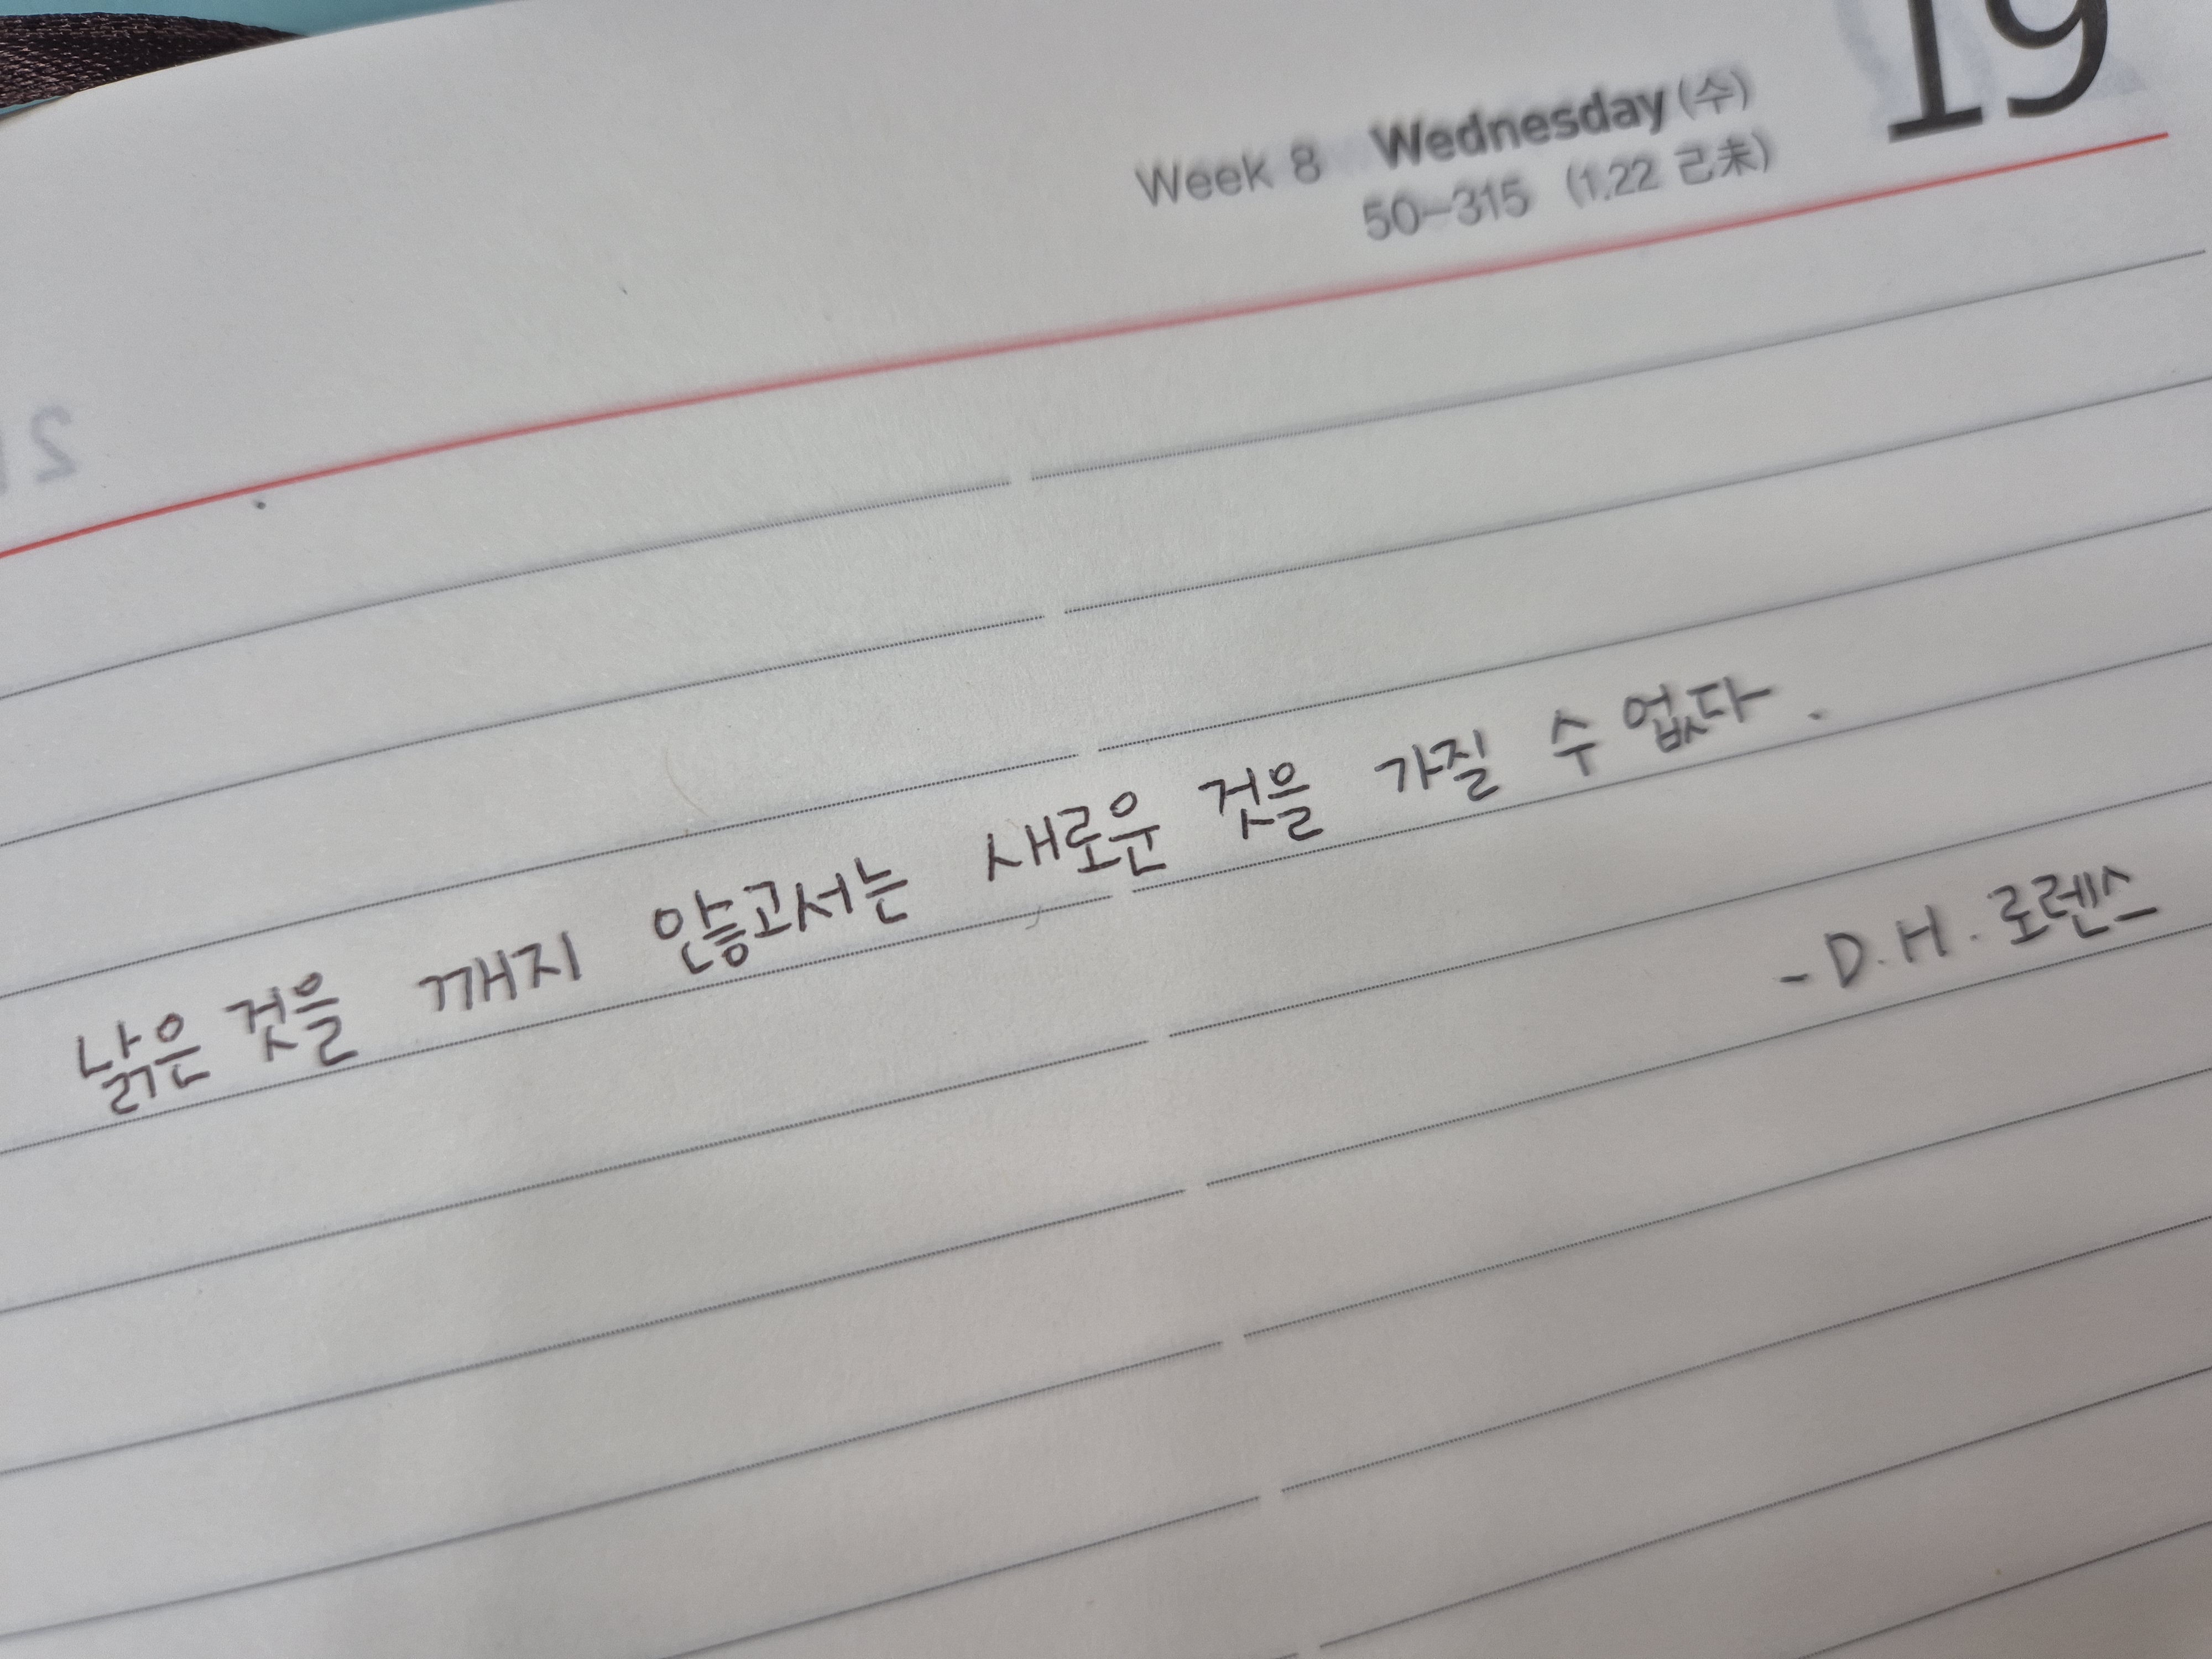 19
Week 8 Wednesday (수)
50-315 (1.22 己未)
낡은 것을 깨지 않고서는 새로운 것을 가질 수 없다.
- D.H. 로렌스